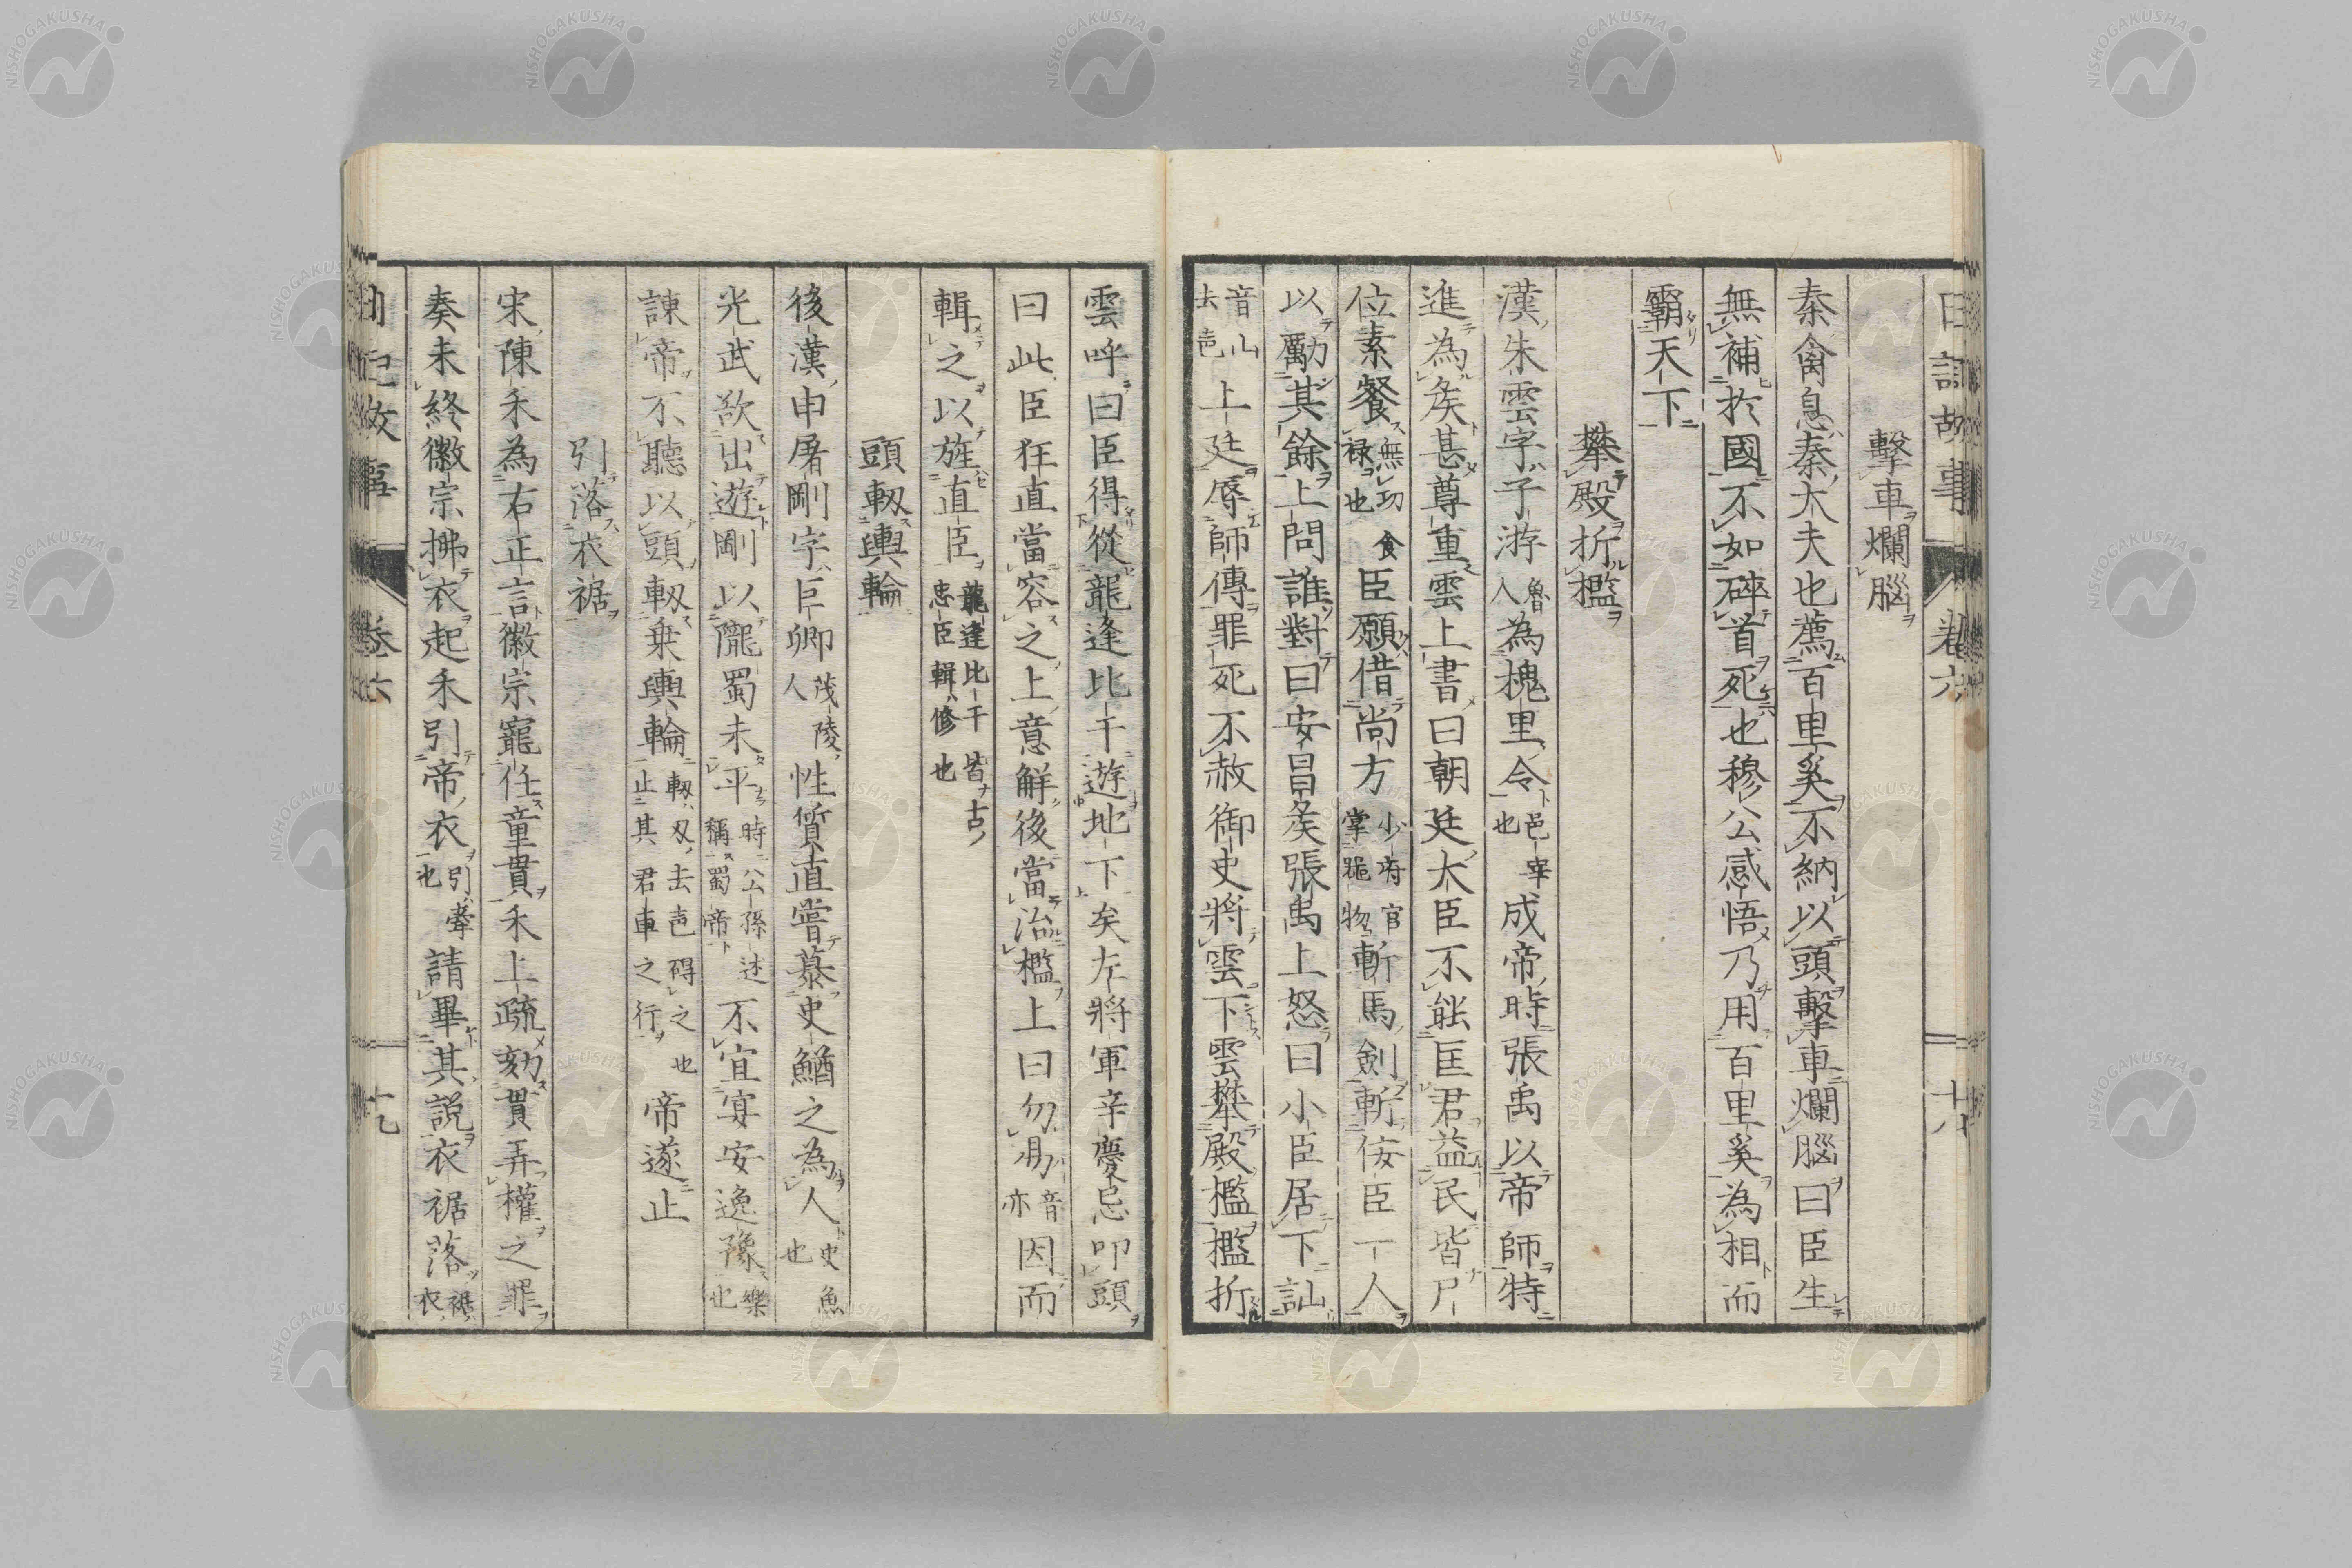 日記故事 卷六 十八
擊車爛腦
秦禽息秦大夫也薦百里奚不納以頭擊車爛腦曰臣生
無補於國不如碎首死也穆公感悟乃用百里奚為相而
霸天下
攀殿折檻
漢朱雲字子游魯人為槐里令邑宰也成帝時張禹以帝師特
進為矦甚尊重雲上書曰朝廷大臣不能匡君益民皆尸
位素餐無功食禄也臣願借尚方少府官掌器物斬馬劍斬佞臣一人
以勵其餘上問誰對曰安昌矦張禹上怒曰小臣居下訕
音山去声上廷辱師傅罪死不赦御史將雲下雲攀殿檻檻折
雲呼曰臣得從龍逢比干遊地下矣左將軍辛慶忌叩頭
曰此臣狂直當容之上意解後當治檻上曰勿易音亦因而
輯之以旌直臣龍逢比干皆古忠臣輯修也
頭軔輿輪
後漢申屠剛字巨卿茂陵人性質直嘗慕史鰌之為人史魚也
光武欲出遊剛以隴蜀未平時公孫述稱蜀帝不宜宴安逸豫樂也
諫帝不聽以頭軔乗輿輪軔刃去声碍之也止其君車之行帝遂止
引落衣裾
宋陳禾為右正言徽宗寵任童貫禾上疏劾貫弄權之罪
奏未終徽宗拂衣起禾引帝衣引牽也請畢其説衣裾落裾衣
日記故事 卷六 十九
NISHOGAKUSHA